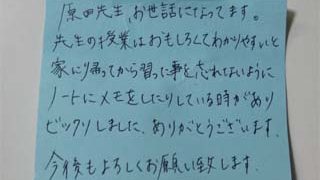 原田先生、お世話になってます。
先生の授業はおもしろくてわかりやすいと
家に帰ってから習った事を忘れないように
ノートにメモをしたりしている時があり
ビックリしました、ありがとうございます。
今後もよろしくお願い致します。